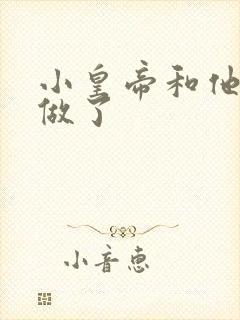 小皇帝和他
做了
小音惠